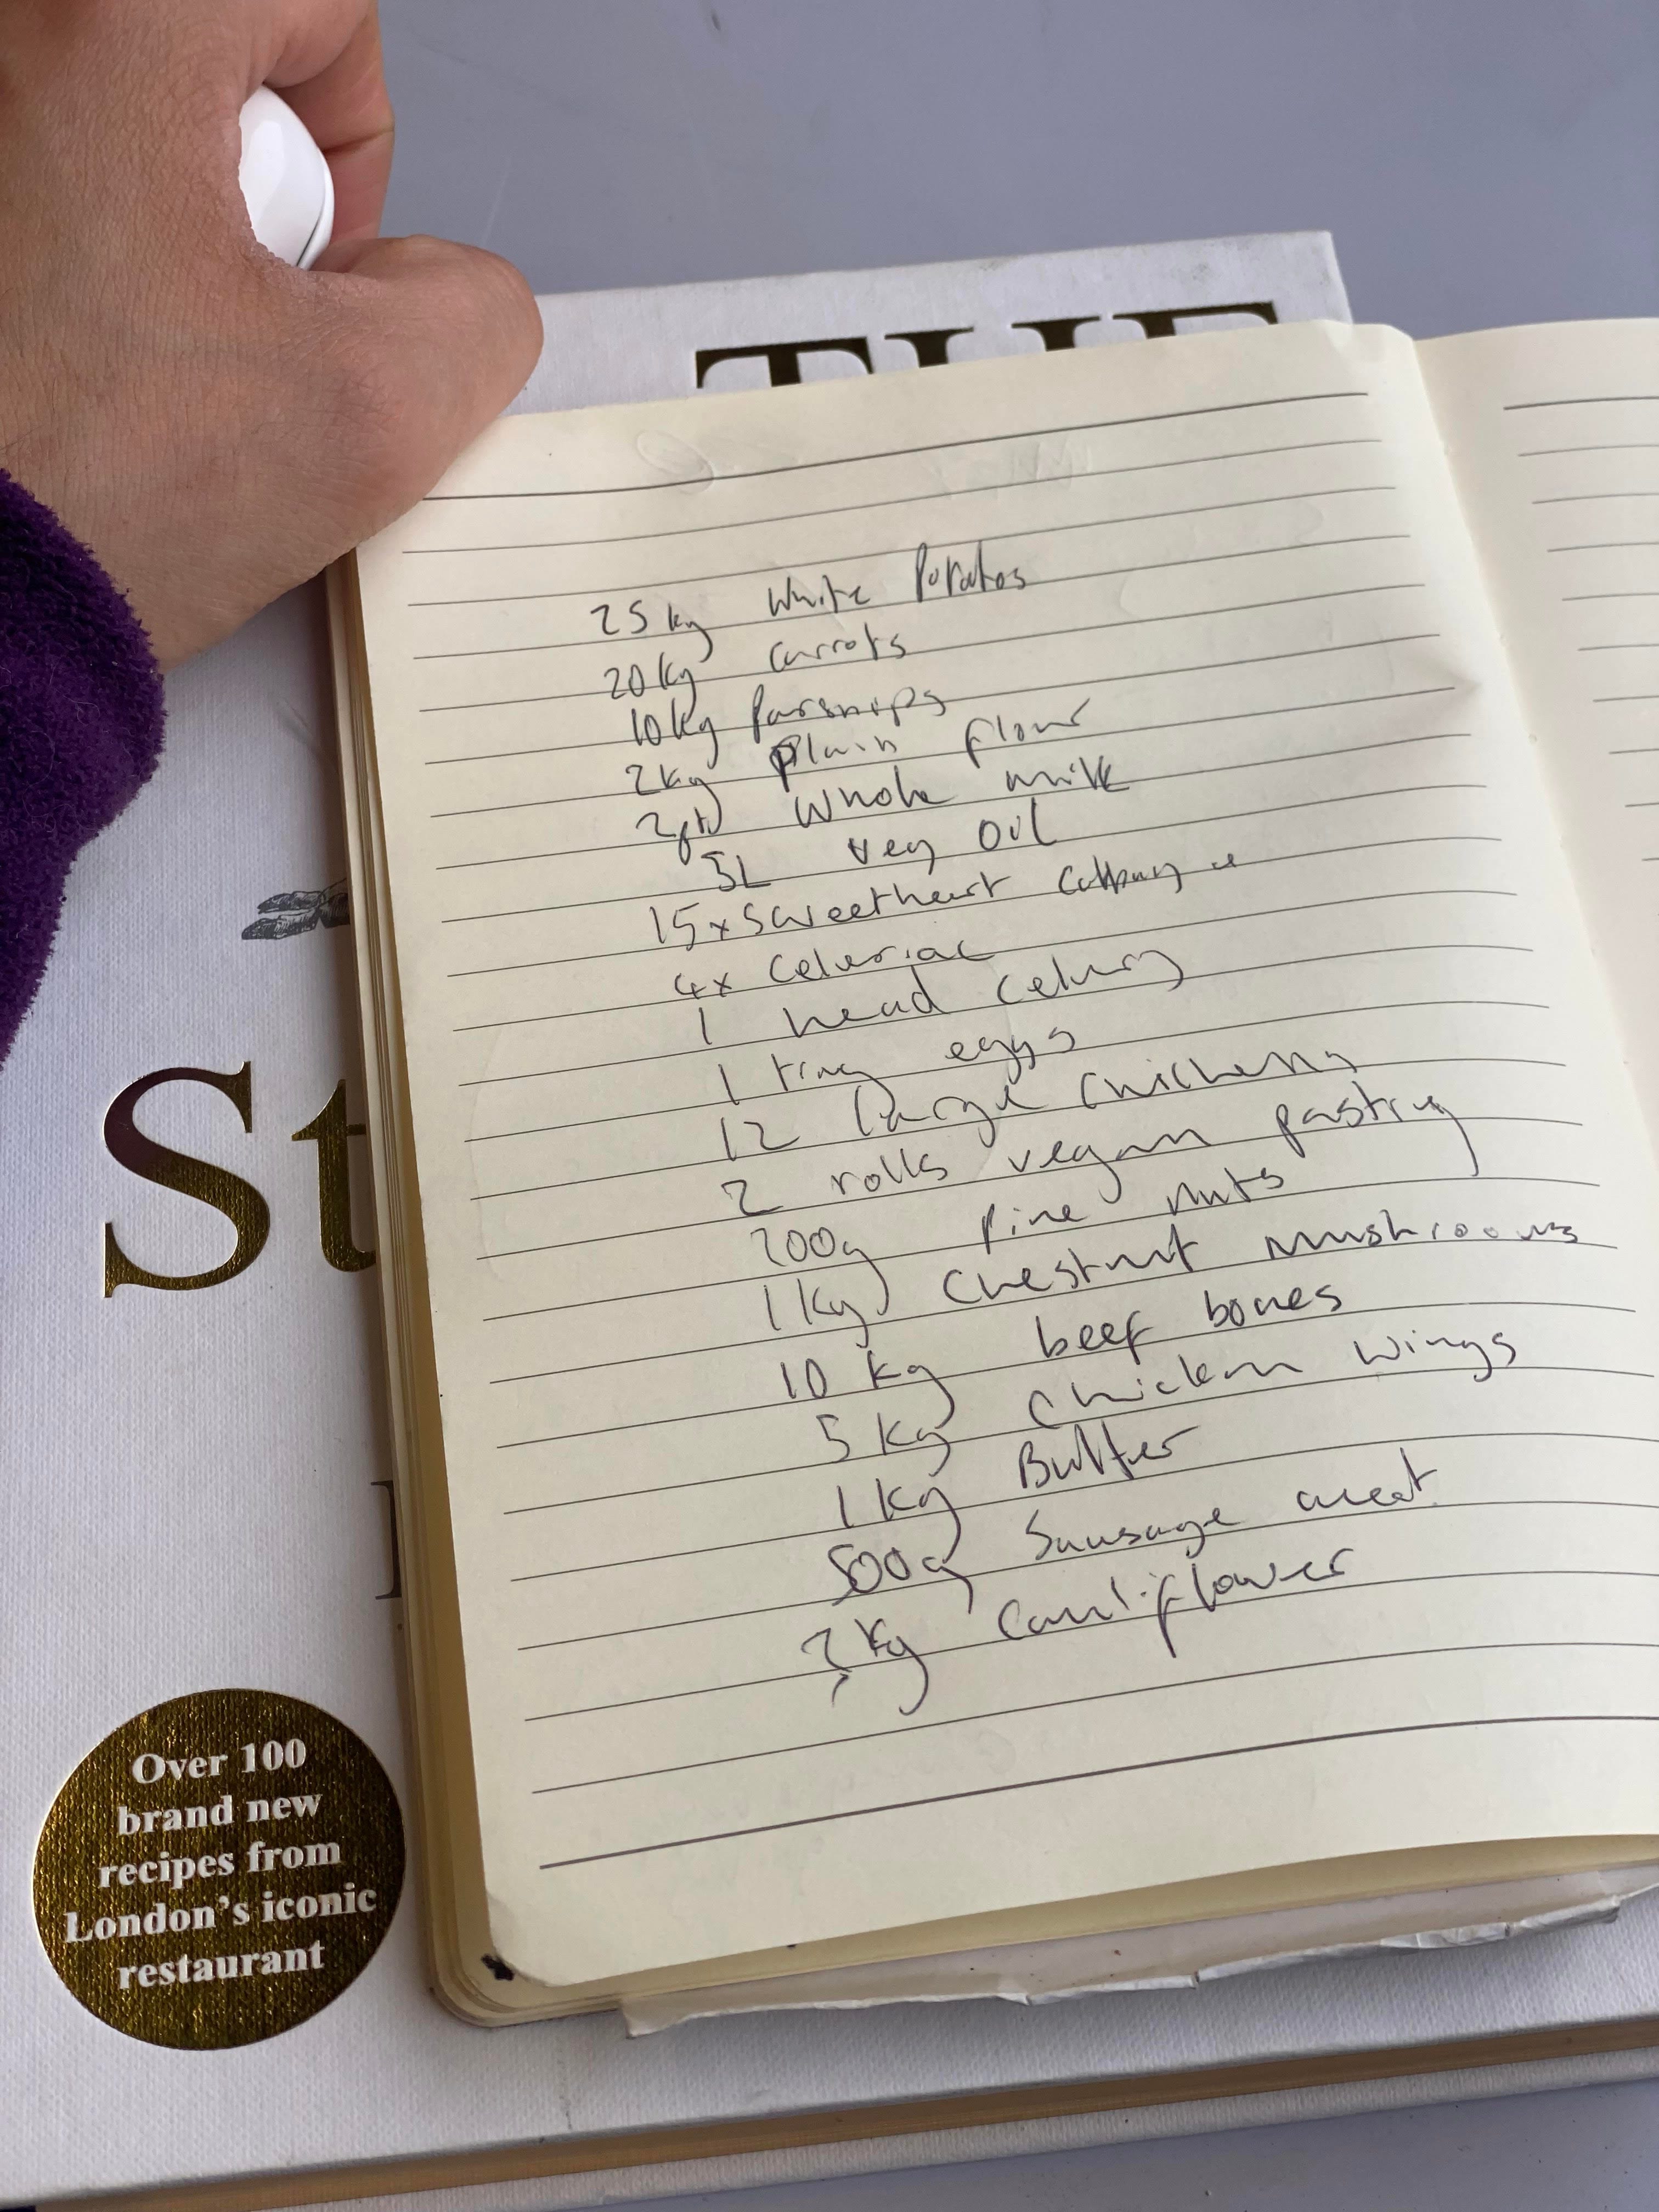 THE
25kg White Potatos
20kg Carrots
10kg Parsnips
2kg Plain flour
2pt Whole milk
5L veg oil
15x Sweetheart Cabbage
4x Celeriac
1 head Celery
1 tray eggs
12 large Chickens
2 rolls vegan pastry
200g pine nuts
1kg Chestnut mushrooms
10 kg beef bones
5 kg Chicken wings
1 kg Butter
500g Sausage meat
kg Cauliflower
St
Over 100
brand new
recipes from
London's iconic
restaurant